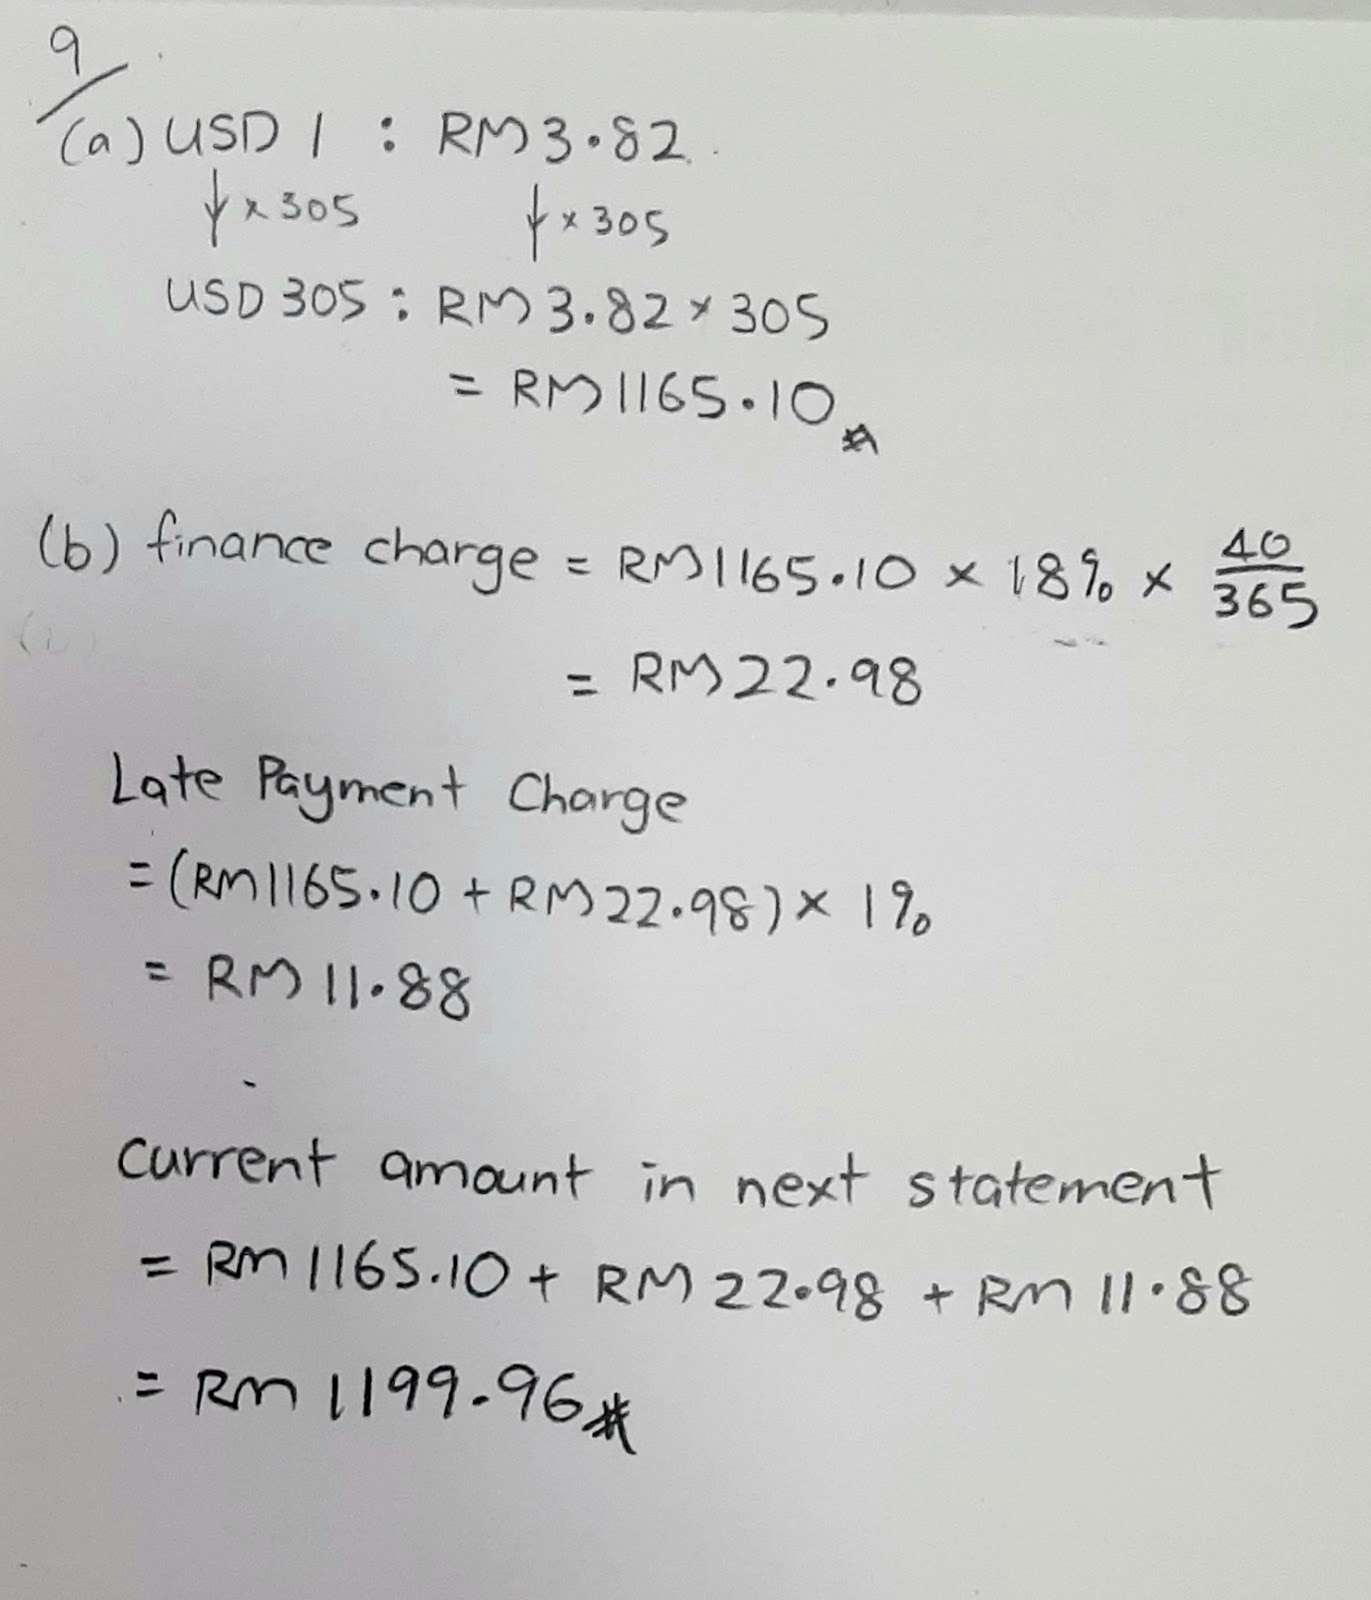 9
(a) USD 1 : RM3.82
↓ × 305 ↓ × 305
USD 305 : RM3.82 × 305
= RM1165.10
(b) finance charge = RM1165.10 × 18% × 40/365
= RM22.98
Late Payment Charge
= (RM1165.10 + RM22.98) × 1%
= RM 11.88
Current amount in next statement
= RM 1165.10 + RM 22.98 + RM 11.88
= RM 1199.96